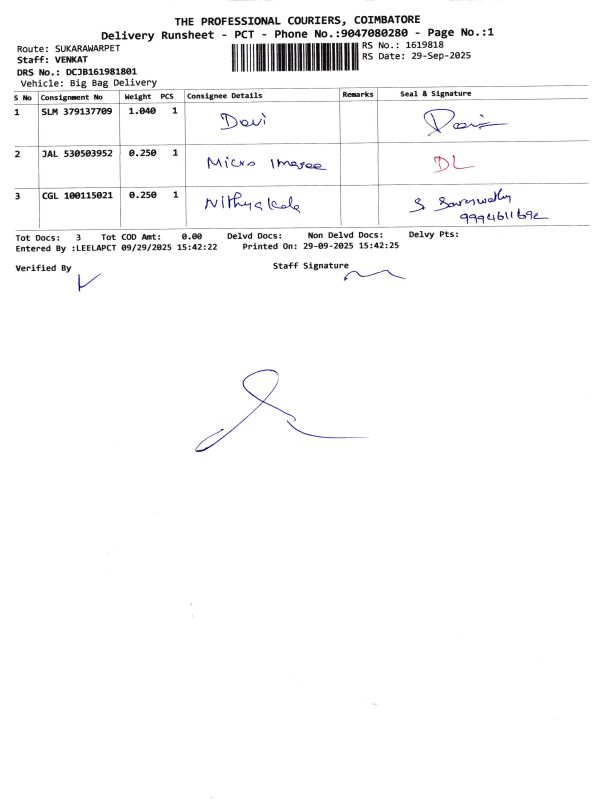 THE PROFESSIONAL COURIERS, COIMBATORE
Delivery Runsheet - PCT - Phone No.:9047080280 - Page No.:1
Route: SUKARAWARPET
RS No.: 1619818
Staff: VENKAT
RS Date: 29-Sep-2025
DRS No.: DCJB161981801
Vehicle: Big Bag Delivery
S No Consignment No Weight PCS Consignee Details Remarks Seal & Signature
1 SLM 379137709 1.040 1 Devi
2 JAL 530503952 0.250 1 Micro Imagee DL
3 CGL 100115021 0.250 1 Nithyakala S Saraswathy
9994611692
Tot Docs: 3 Tot COD Amt: 0.00 Delvd Docs: Non Delvd Docs: Delvy Pts:
Entered By :LEELAPCT 09/29/2025 15:42:22 Printed On: 29-09-2025 15:42:25
Verified By Staff Signature